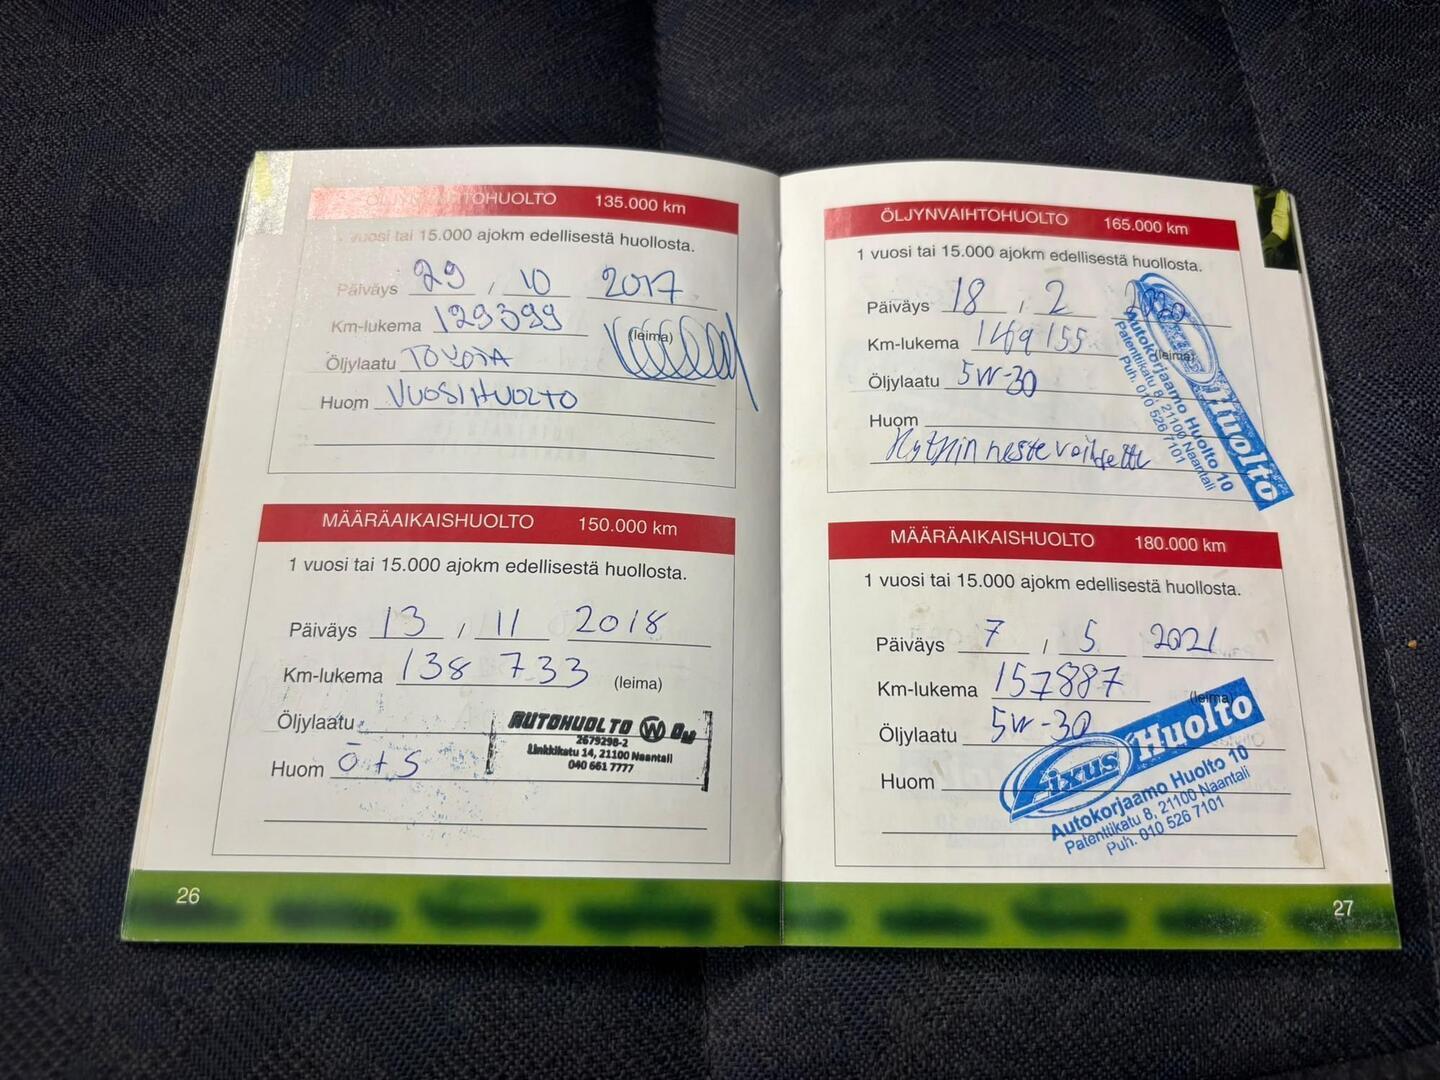 ÖLJYNVAIHTOHUOLTO 135.000 km
1 vuosi tai 15.000 ajokm edellisestä huollosta.
Päiväys 29 , 10 2017
Km-lukema 129399 (leima)
Öljylaatu TOYOTA
Huom VUOSIHUOLTO
MÄÄRÄAIKAISHUOLTO 150.000 km
1 vuosi tai 15.000 ajokm edellisestä huollosta.
Päiväys 13 / 11 2018
Km-lukema 138 733 (leima)
Öljylaatu
Huom Ö + S
AUTOHUOLTO W Oy
2679298-2
Linkkikatu 14, 21100 Naantali
040 661 7777
26
ÖLJYNVAIHTOHUOLTO 165.000 km
1 vuosi tai 15.000 ajokm edellisestä huollosta.
Päiväys 18 , 2 2020
Km-lukema 149 155 (leima)
Öljylaatu 5W-30
Huom
neste
Fixus Huolto
Autokorjaamo Huolto 10
Patenttikatu 8, 21100 Naantali
Puh. 010 526 7101
MÄÄRÄAIKAISHUOLTO 180.000 km
1 vuosi tai 15.000 ajokm edellisestä huollosta.
Päiväys 7 / 5 2021
Km-lukema 157887 (leima)
Öljylaatu 5W-30
Huom
Fixus Huolto
Autokorjaamo Huolto 10
Patenttikatu 8, 21100 Naantali
Puh. 010 526 7101
27